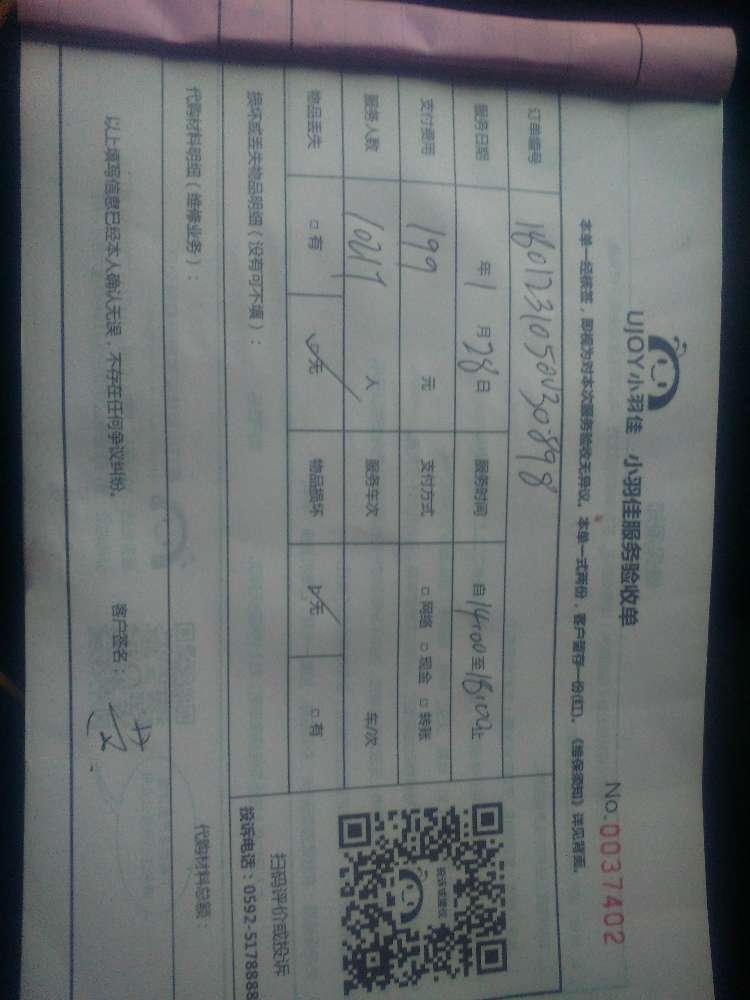 UJOY小羽佳 小羽佳服务验收单
No.0037402
本单一经核签，即视为对本次服务验收无异议。本单一式两份，客户留存一份(红)。《维保须知》详见背面。
订单编号 180123105043089 8
服务日期 年1月28日 服务时间 自14:00至18:00止
支付费用 199 元 支付方式 □网络 □现金 □转账
服务人数 10217 人 服务车次 车/次
物品丢失 □有 ☑无 物品损坏 ☑无 □有
损坏或丢失物品明细（没有可不填）：
代购材料明细（维修业务）：
代购材料总额：
以上填写信息已经本人确认无误，不存在任何争议纠纷。
客户签名：
投诉或建议
扫码评价或投诉
投诉电话：0592-5178888